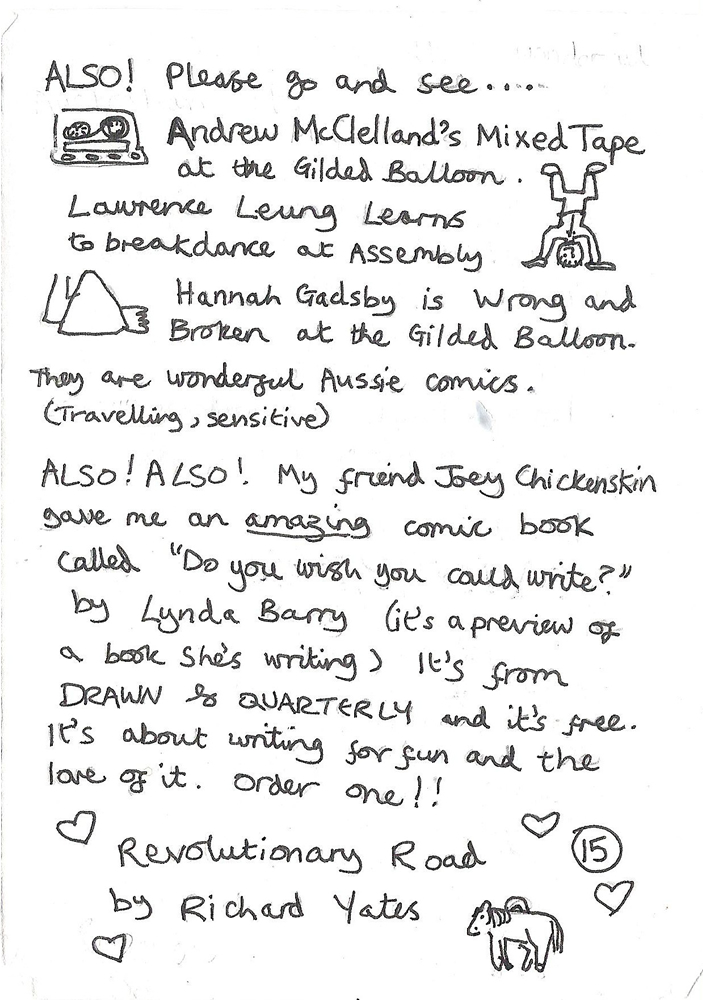 ALSO! Please go and see....
Andrew McClelland's Mixed Tape
at the Gilded Balloon.
Lawrence Leung Learns
to breakdance at Assembly
Hannah Gadsby is Wrong and
Broken at the Gilded Balloon.
They are wonderful Aussie comics.
(Travelling, sensitive)
ALSO! ALSO! My friend Joey Chickenskin
gave me an amazing comic book
called "Do you wish you could write?"
by Lynda Barry (it's a preview of
a book she's writing) It's from
DRAWN & QUARTERLY and it's free.
It's about writing for fun and the
love of it. Order one!!
Revolutionary Road
15
by Richard Yates